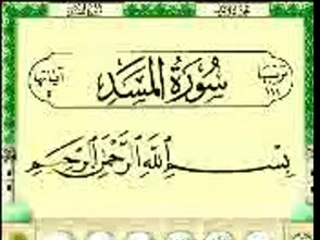 ترتيبها ١١١ سُورَةُ المَسَدِ آياتها ٥
بِسْمِ ٱللَّهِ ٱلرَّحْمَٰنِ ٱلرَّحِيمِ